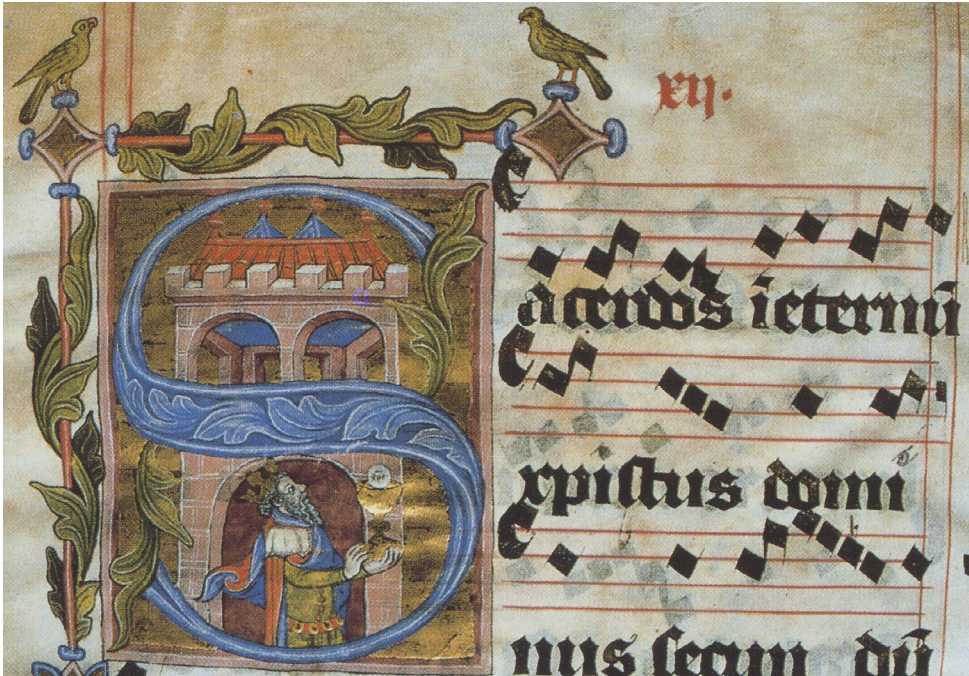 xij.
Sacerdos ī eternū
xpistus domi
nus secun dū